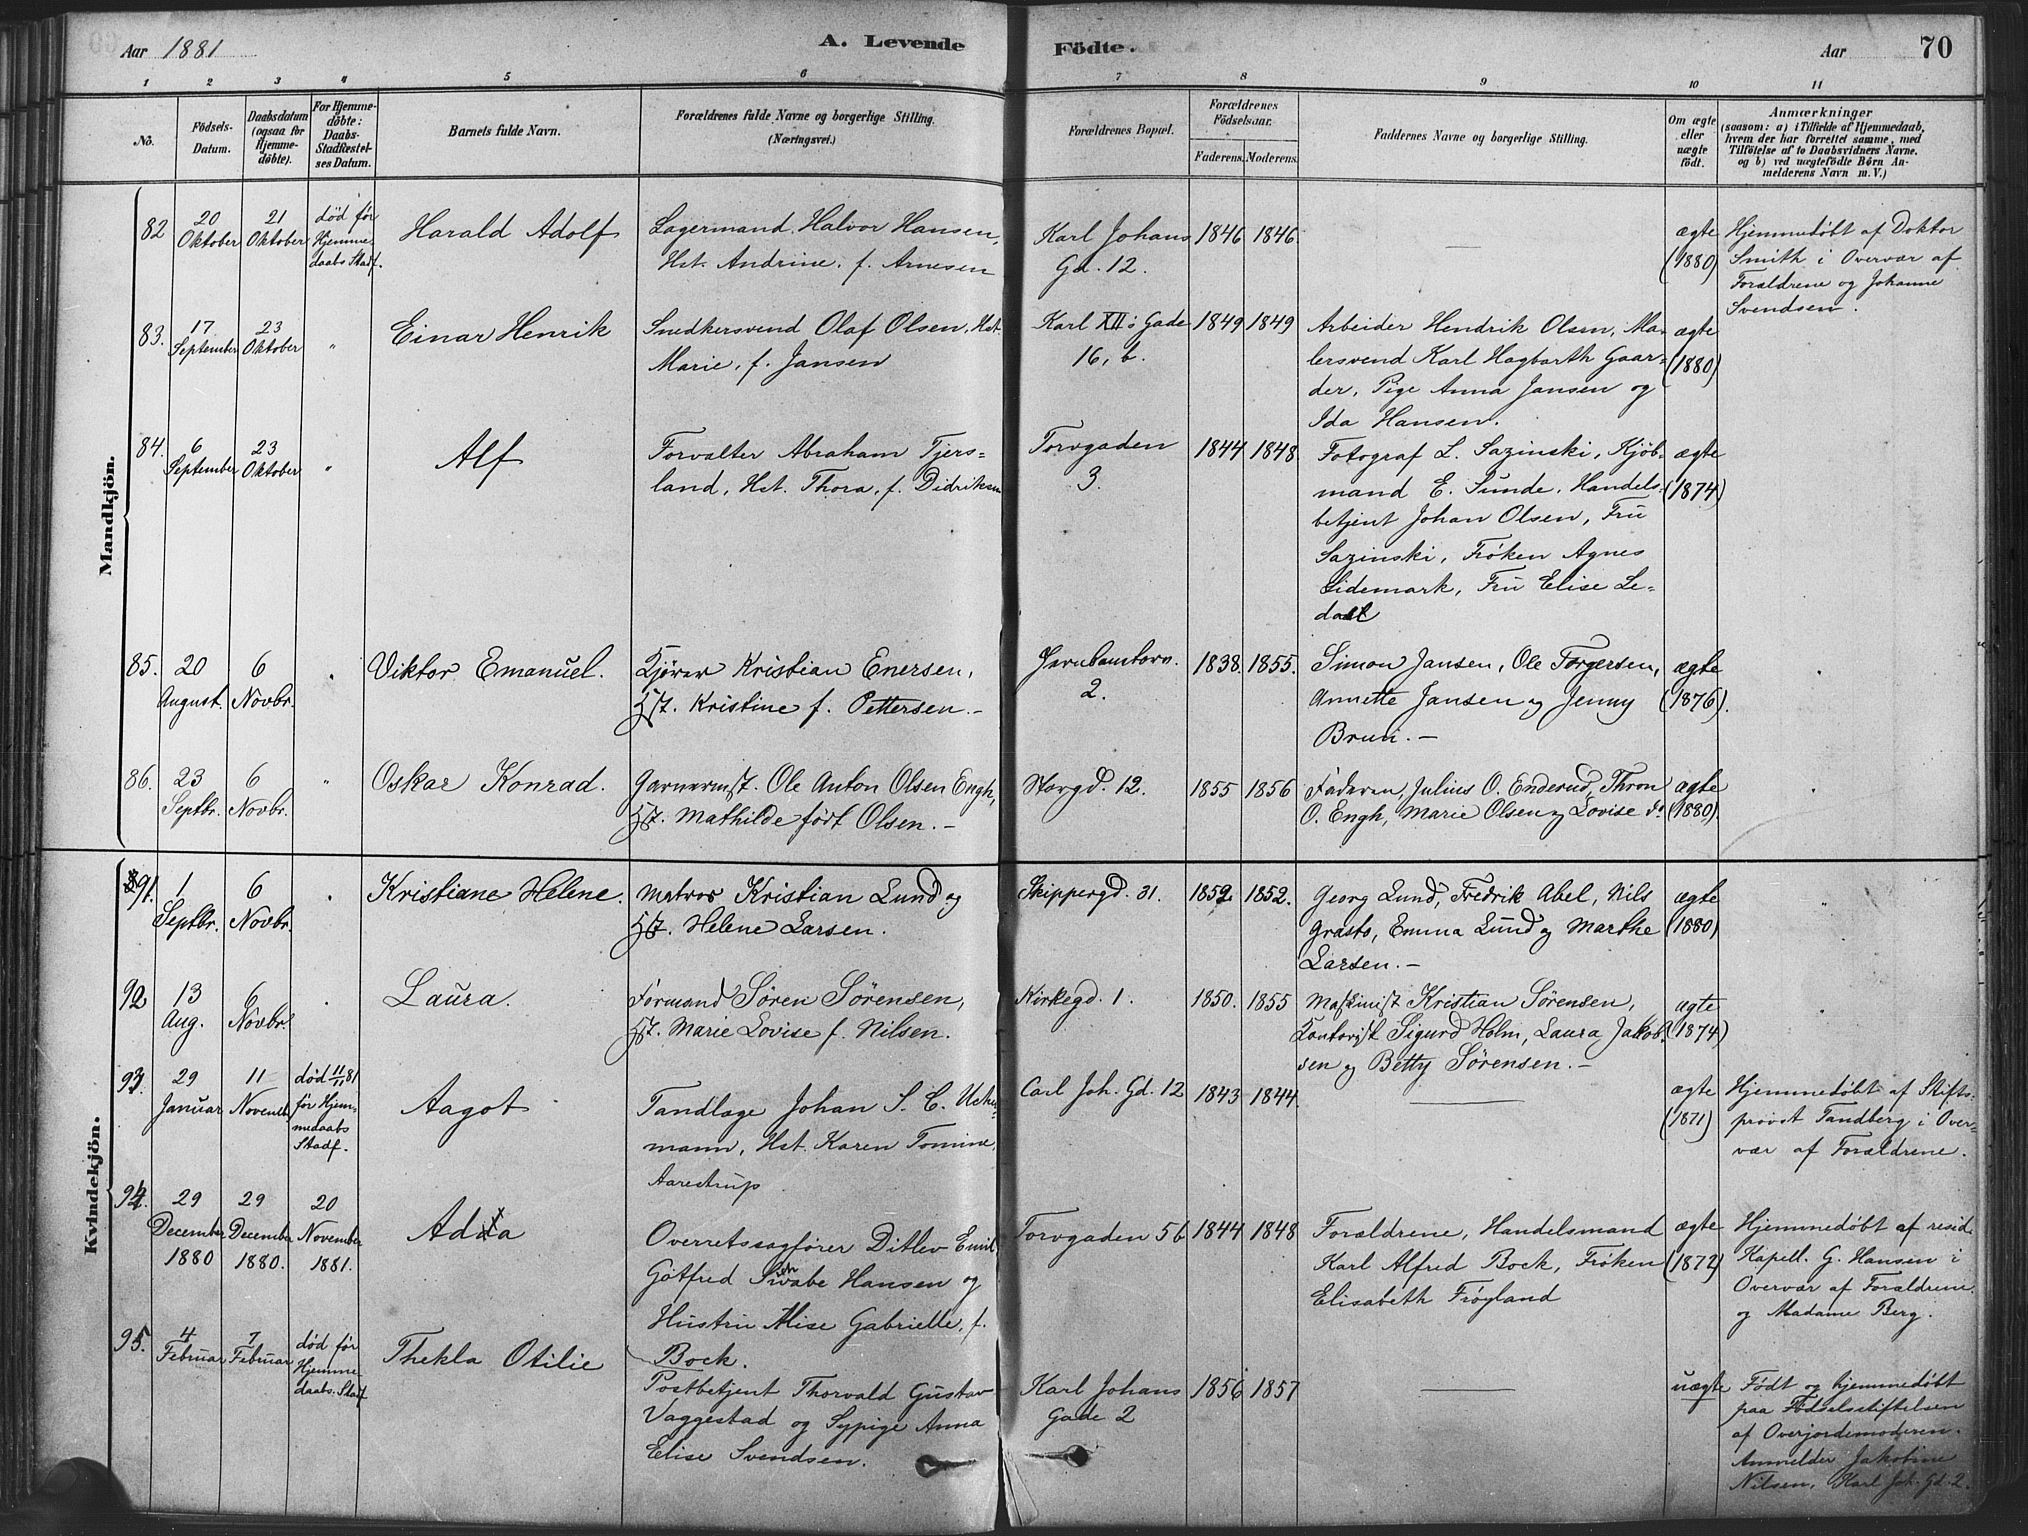 Aar 1881
A. Levende
Födte.
Aar
70
1 2 3 4 5 6 7 8 9 10 11
No.
Födsels-
Datum.
Daabsdatum
(ogsaa for
Hjemme-
döbte).
For Hjemme-
döbte:
Daabs-
Stadfæstel-
ses Datum.
Barnets fulde Navn.
Forældrenes fulde Navne og borgerlige Stilling.
(Næringsvei.)
Forældrenes Bopæl.
Forældrenes
Födselsaar.
Faderens. Moderens.
Faddernes Navne og borgerlige Stilling.
Om ægte
eller
uægte
födt.
Anmærkninger
(saasom: a) i Tilfælde af Hjemmedaab,
hvem der har forrettet samme, med
Tilföielse af to Daabsvidners Navne.
og b) ved uægtefödte Börn An-
melderens Navn m. V.)
Mandkjön.
82
20
Oktober
21
Oktober
død før
Hjemme-
daabs Stadf.
Harald Adolf
Lagermand Halvor Hansen,
Hst. Andrine, f. Arnesen
Karl Johans
Gd. 12.
1846 1846.
ægte
(1880)
Hjemmedøbt af Doktor
Smith i Overvær af
Forældrene og Johanne
Svendsen.
83.
17
September
23
Oktober
"
Einar Henrik
Snedkersvend Olaf Olsen, Hst.
Marie, f. Jansen
Karl XII's Gade
16, b.
1849 1849
Arbeider Hendrik Olsen, Ma-
lersvend Karl Hagbarth Gaar-
der, Pige Anna Jansen og
Ida Hansen.
ægte
(1880)
84.
6
September
23
Oktober
"
Alf
Forvalter Abraham Tjers-
land, Hst. Thora, f. Didriksen
Torvgaden
3.
1844 1848.
Fotograf L. Sazinski, Kjøb-
mand E. Sunde, Handels-
betjent Johan Olsen, Fru
Sazinski, Frøken Agnes
Lidemark, Fru Elise Le-
dall
ægte
(1874)
85.
20
August.
6
Novbr.
"
Viktor Emanuel.
Kjører Kristian Enersen,
Hst. Kristine f. Pettersen.-
Jernbantorv.
2.
1838. 1855.
Simon Jansen, Ole Torgersen,
Annette Jansen og Jenny
Brun.-
ægte
(1876).
86.
23
Septbr.
6
Novbr.
"
Oskar Konrad.
Garvermst. Ole Anton Olsen Engh,
Hst. Mathilde født Olsen.-
Storgd. 12.
1855 1856
Faderen, Julius O. Enderud, Thron
O. Engh, Marie Olsen og Lovise do
ægte
(1880).
Kvindekjön.
91.
1
Septbr.
6
Novbr.
"
Kristiane Helene.
Matros Kristian Lund og
Hst. Helene Larsen.
Skippergd. 31.
1852 1852.
Georg Lund, Fredrik Abel, Nils
Grasto, Emma Lund og Marthe
Larsen.-
ægte
(1880)
92
13
Aug.
6
Novbr.
"
Laura.
Formand Søren Sørensen,
Hst. Marie Lovise f. Nilsen.
Kirkegd. 1.
1850. 1855
Maskinist Kristian Sørensen,
Kontorist Sigurd Holm, Laura Jakob-
sen og Betty Sørensen.-
ægte
(1874)
93.
29
Januar
11
Novemb.
død 11/11 81
før Hjem-
medaabs
Stadf.
Aagot
Tandlæge Johan S. C.
mann, Hst. Karen Tomine,
Aarestrup
Carl Joh. Gd. 12
1843 1844
ægte
(1871)
Hjemmedøbt af Stifts-
provst Tandberg i Over-
vær af Forældrene.
94.
29
December
1880
29
December
1880.
20
November
1881.
Adda
Overretssagfører Ditlev Emil
Gotfred Schwabe Hansen og
Hustru Alise Gabrielle, f.
Bock.
Torvgaden 56
1844 1848
Forældrene, Handelsmand
Karl Alfred Bock, Frøken
Elisabeth Frøyland
ægte
(1872)
Hjemmedøbt af resid.
Kapell. G. Hansen i
Overvær af Forældrene
og Madame Berg.
95.
4
Februar
7
Februar
død før
Hjemme-
daabs. Stadf
Thekla Otilie
Postbetjent Thorvald Gustav
Vaggestad og Sypige Anna
Elise Svendsen.
Karl Johans
Gade 2
1856 1857
uægte
Født og hjemmedøbt
paa Fødselsstiftelsen
af Overjordemoderen.
Anmelder Jakobine
Nilsen, Karl Joh. Gd. 2.